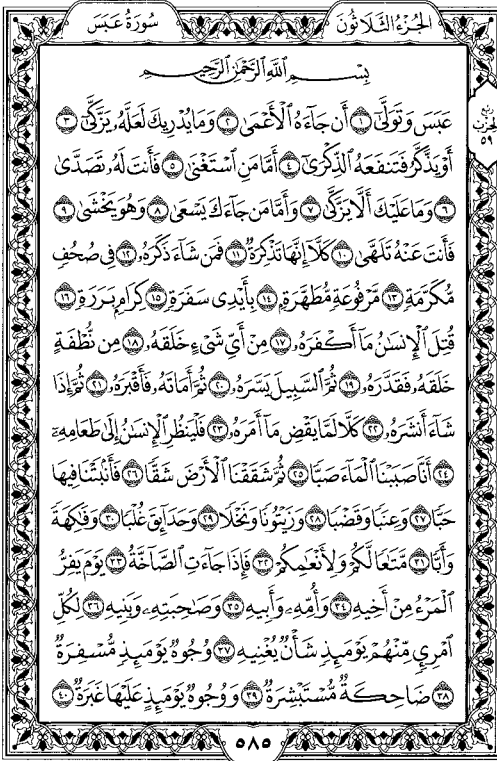 الجُزْءُ الثَّلَاثُونَ
سُورَةُ عَبَسَ
رُبْع
الحِزْب
٥٩
بِسْمِ ٱللَّهِ ٱلرَّحْمَٰنِ ٱلرَّحِيمِ
عَبَسَ وَتَوَلَّىٰٓ ١ أَن جَآءَهُ ٱلْأَعْمَىٰ ٢ وَمَا يُدْرِيكَ لَعَلَّهُۥ يَزَّكَّىٰٓ ٣
أَوْ يَذَّكَّرُ فَتَنفَعَهُ ٱلذِّكْرَىٰٓ ٤ أَمَّا مَنِ ٱسْتَغْنَىٰ ٥ فَأَنتَ لَهُۥ تَصَدَّىٰ
٦ وَمَا عَلَيْكَ أَلَّا يَزَّكَّىٰ ٧ وَأَمَّا مَن جَآءَكَ يَسْعَىٰ ٨ وَهُوَ يَخْشَىٰ ٩
فَأَنتَ عَنْهُ تَلَهَّىٰ ١٠ كَلَّآ إِنَّهَا تَذْكِرَةٌ ١١ فَمَن شَآءَ ذَكَرَهُۥ ١٢ فِى صُحُفٍ
مُّكَرَّمَةٍ ١٣ مَّرْفُوعَةٍ مُّطَهَّرَةٍۭ ١٤ بِأَيْدِى سَفَرَةٍ ١٥ كِرَامٍۭ بَرَرَةٍ ١٦
قُتِلَ ٱلْإِنسَٰنُ مَآ أَكْفَرَهُۥ ١٧ مِنْ أَىِّ شَىْءٍ خَلَقَهُۥ ١٨ مِن نُّطْفَةٍ
خَلَقَهُۥ فَقَدَّرَهُۥ ١٩ ثُمَّ ٱلسَّبِيلَ يَسَّرَهُۥ ٢٠ ثُمَّ أَمَاتَهُۥ فَأَقْبَرَهُۥ ٢١ ثُمَّ إِذَا
شَآءَ أَنشَرَهُۥ ٢٢ كَلَّا لَمَّا يَقْضِ مَآ أَمَرَهُۥ ٢٣ فَلْيَنظُرِ ٱلْإِنسَٰنُ إِلَىٰ طَعَامِهِۦٓ
٢٤ أَنَّا صَبَبْنَا ٱلْمَآءَ صَبًّا ٢٥ ثُمَّ شَقَقْنَا ٱلْأَرْضَ شَقًّا ٢٦ فَأَنۢبَتْنَا فِيهَا
حَبًّا ٢٧ وَعِنَبًا وَقَضْبًا ٢٨ وَزَيْتُونًا وَنَخْلًا ٢٩ وَحَدَآئِقَ غُلْبًا ٣٠ وَفَٰكِهَةً
وَأَبًّا ٣١ مَّتَٰعًا لَّكُمْ وَلِأَنْعَٰمِكُمْ ٣٢ فَإِذَا جَآءَتِ ٱلصَّآخَّةُ ٣٣ يَوْمَ يَفِرُّ
ٱلْمَرْءُ مِنْ أَخِيهِ ٣٤ وَأُمِّهِۦ وَأَبِيهِ ٣٥ وَصَٰحِبَتِهِۦ وَبَنِيهِ ٣٦ لِكُلِّ
ٱمْرِئٍ مِّنْهُمْ يَوْمَئِذٍ شَأْنٌ يُغْنِيهِ ٣٧ وُجُوهٌ يَوْمَئِذٍ مُّسْفِرَةٌ
٣٨ ضَاحِكَةٌ مُّسْتَبْشِرَةٌ ٣٩ وَوُجُوهٌ يَوْمَئِذٍ عَلَيْهَا غَبَرَةٌ ٤٠
٥٨٥